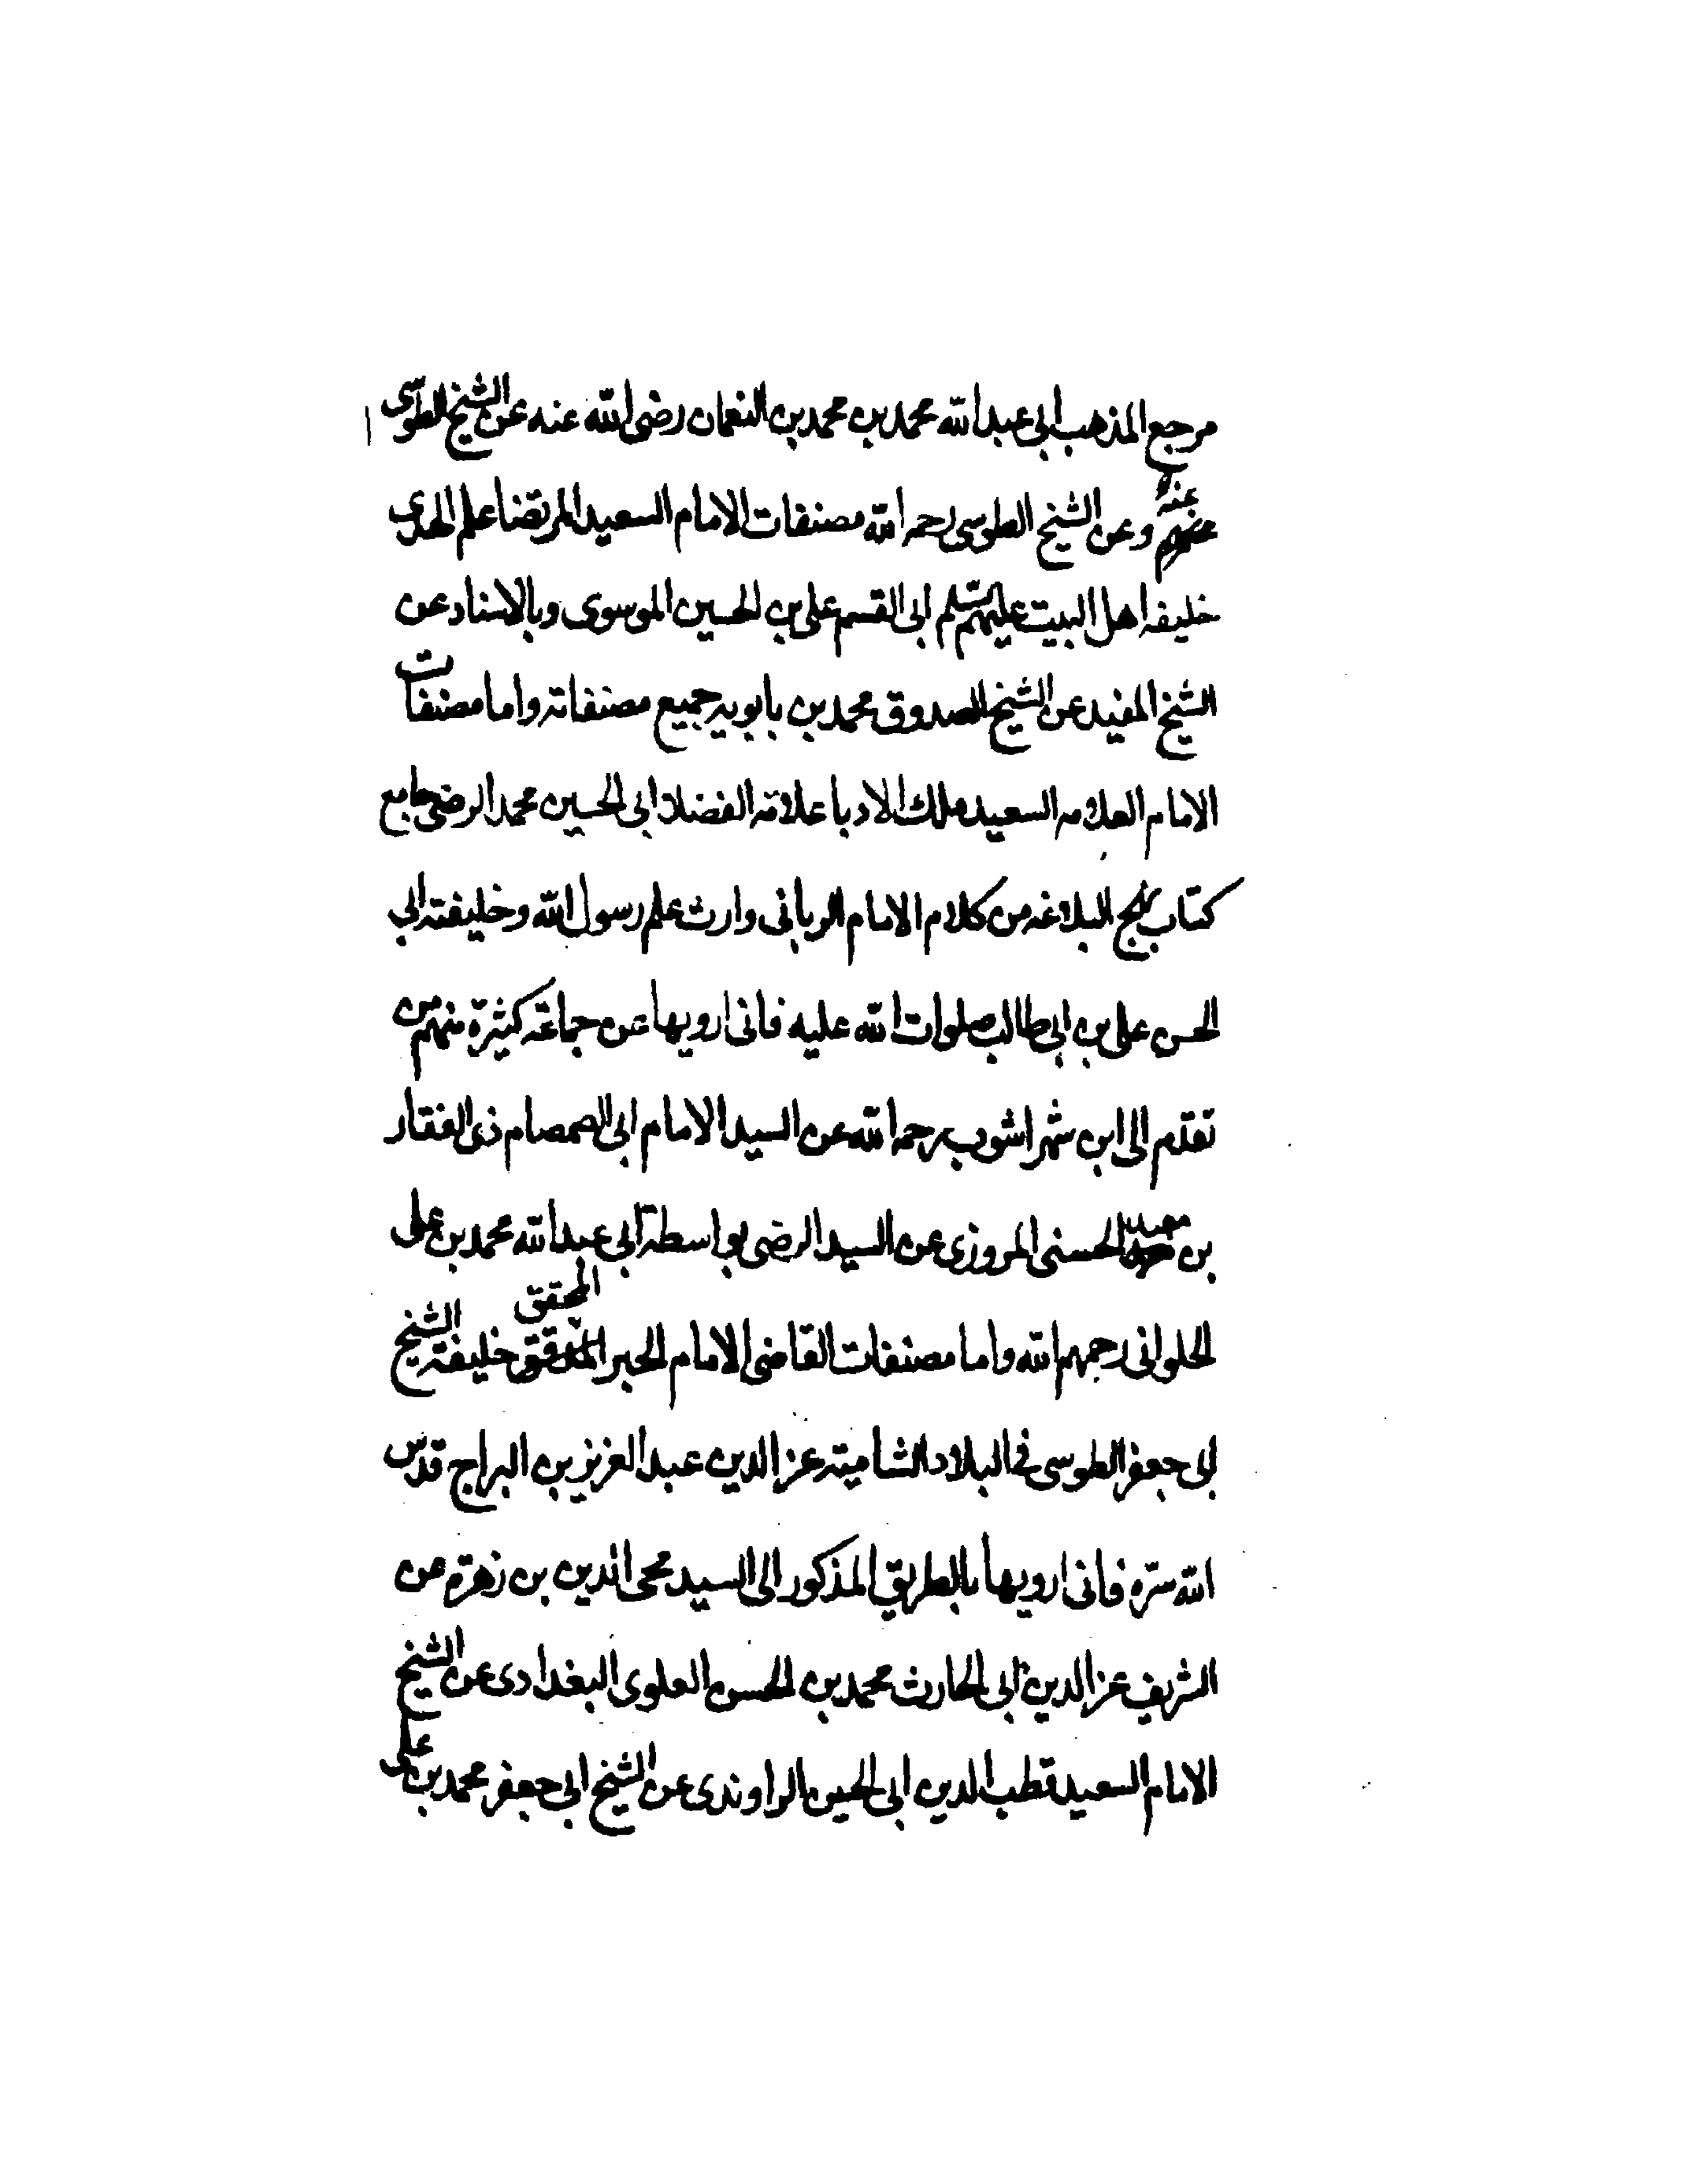 مرجع المذهب ابى عبد الله محمد بن محمد بن النعمان رضى الله عنه عن الشيخ الطوسى
عنه وعن الشيخ الطوسى رحمه الله مصنفات الامام السعيد المرتضا علم الهدى
خليفه اهل البيت عليهم السلم ابى القسم على بن الحسين الموسوى وبالاسناد عن
الشيخ المفيد عن الشيخ الصدوق محمد بن بابويه جميع مصنفاته واما مصنفات
الامام العلامه السعيد ملك الادبا علامه الفضلا ابى الحسين محمد الرضى جامع
كتاب نهج البلاغه من كلام الامام الربانى وارث علم رسول الله وخليفته ابى
الحسن على بن ابى طالب صلوات الله عليه فانى ارويها عن جماعة كثيرة منهم من
تقدم الى ابن شهراشوب رحمه الله عن السيد الامام ابى الصمصام ذى الفقار
بن معبد الحسنى المروزى عن السيد الرضى بواسطة ابى عبد الله محمد بن على
الحلوانى رحمهم الله واما مصنفات القاضى الامام الحبر المحقق خليفة الشيخ
ابى جعفر الطوسى فى البلاد الشامية عز الدين عبد العزيز بن البراج قدس
الله سره فانى ارويها بالطريق المذكور الى السيد محى الدين بن زهرة عن
الشريف عز الدين ابى الحارث محمد بن الحسن العلوى البغدادى عن الشيخ
الامام السعيد قطب الدين ابى الحسين الراوندى عن الشيخ ابى جعفر محمد بن على